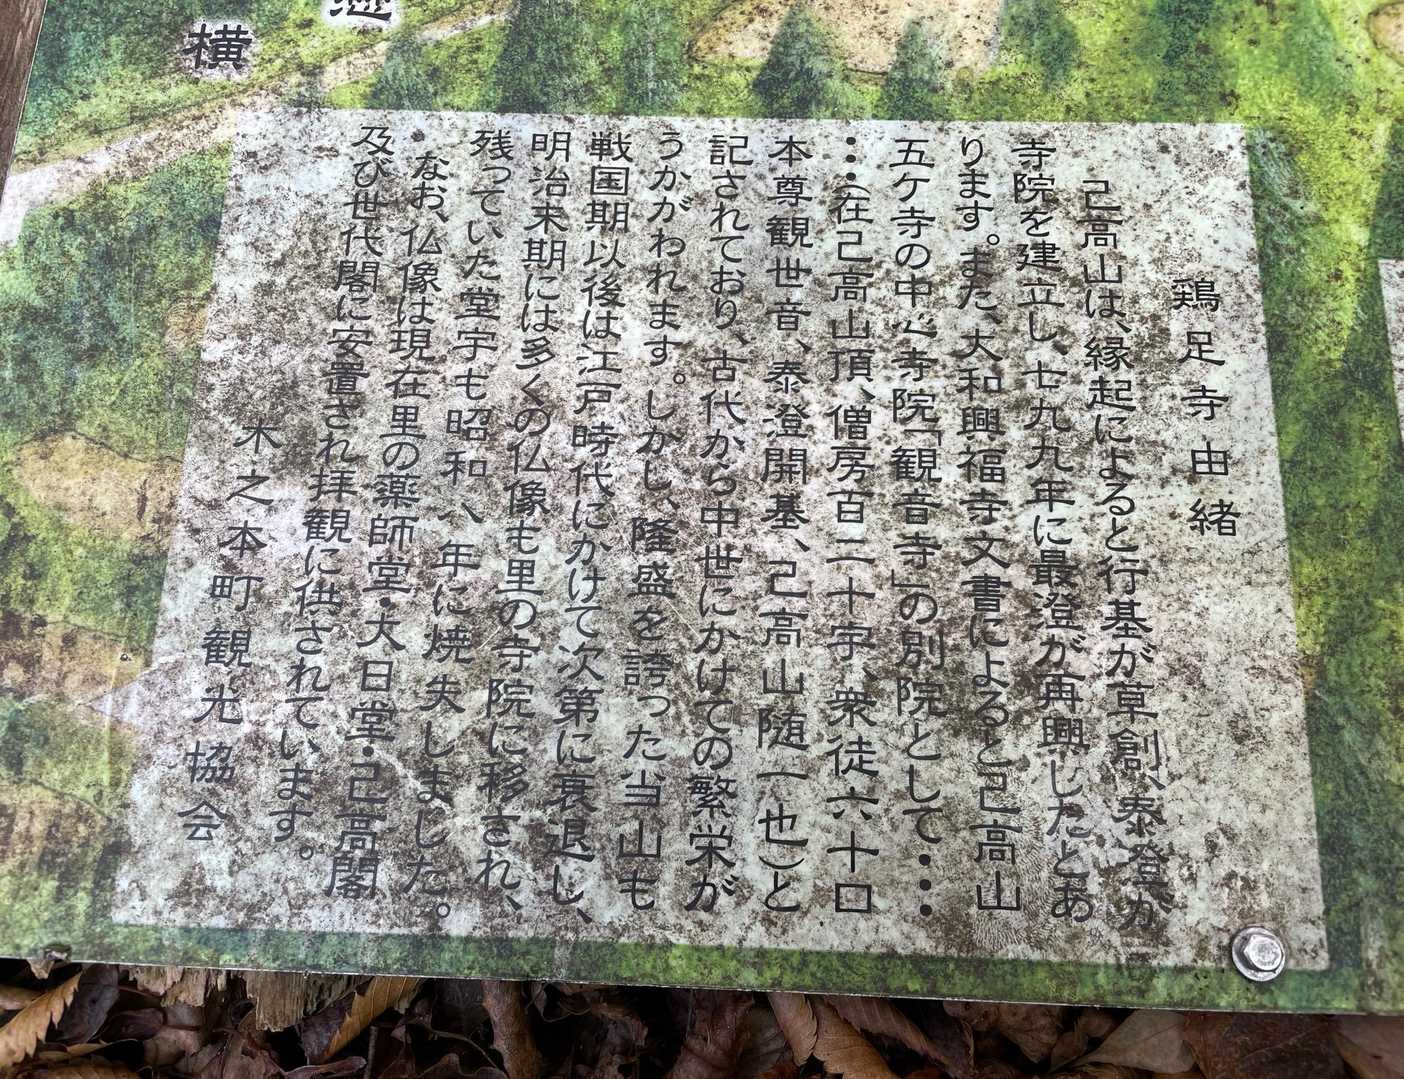 鶏足寺由緒
己高山は、縁起によると行基が草創、泰澄が
寺院を建立し、七九九年に最登が再興したとあ
ります。また、大和興福寺文書によると己高山
五ケ寺の中心寺院「観音寺」の別院として・・・
・・・(在己高山頂、僧房百二十宇、衆徒六十口
本尊観世音、泰澄開基、己高山随一也)と
記されており、古代から中世にかけての繁栄が
うかがわれます。しかし、隆盛を誇った当山も
戦国期以後は江戸時代にかけて次第に衰退し、
明治末期には多くの仏像も里の寺院に移され、
残っていた堂宇も昭和八年に焼失しました。
・なお、仏像は現在里の薬師堂・大日堂・己高閣
及び世代閣に安置され拝観に供されています。
木之本町観光協会
横